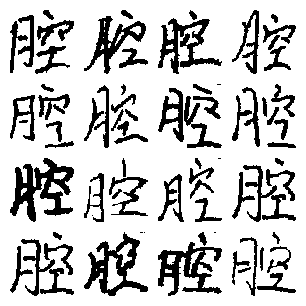 腔腔腔腔
腔腔腔腔
腔腔腔腔
腔腔腔腔